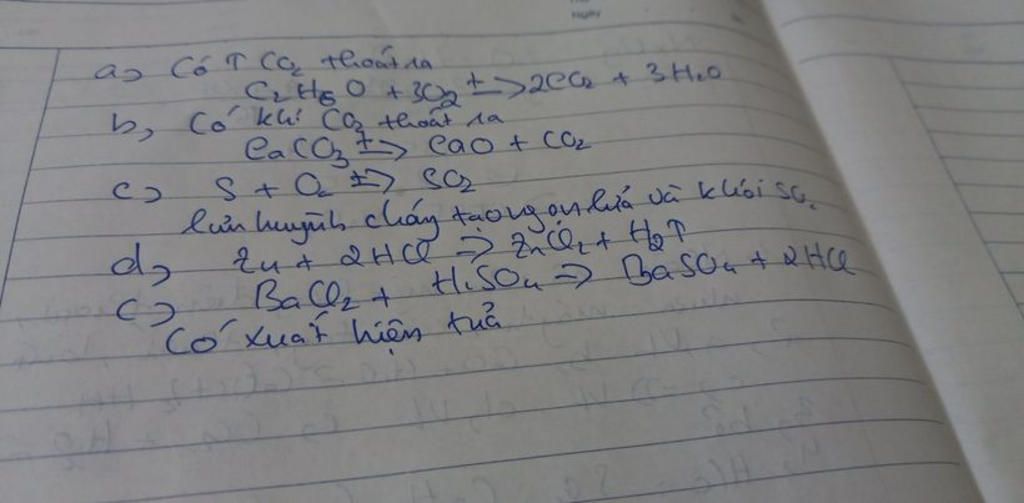 a) Có ↑ CO₂ thoát ra
C₂H₆O + 3O₂ t→ 2CO₂ + 3H₂O
b, Có khí CO₂ thoát ra
CaCO₃ t⇒ CaO + CO₂
c) S + O₂ t⇒ SO₂
lưu huỳnh cháy tạo ngọn lửa và khói SO₂
d, Zn + 2HCl ⇒ ZnCl₂ + H₂↑
c) BaCl₂ + H₂SO₄ ⇒ BaSO₄ + 2HCl
Có xuất hiện tuả